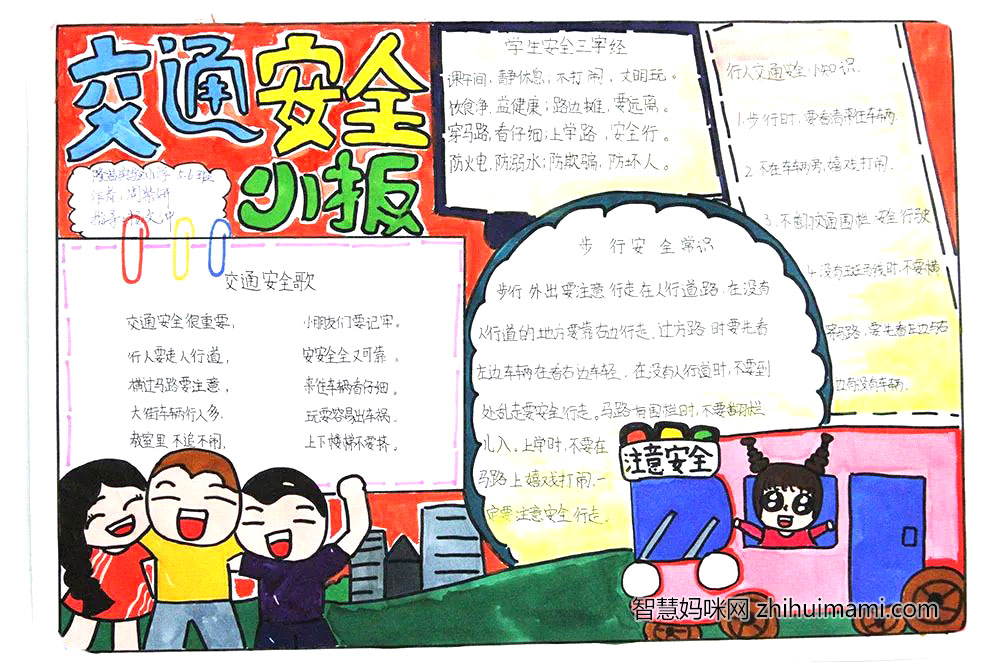 交通安全
小报
5.6班
作者:周紫妍
学生安全三字经
课午间,静休息;不打闹,文明玩。
饮食净,益健康;路边摊,要远离。
穿马路,看仔细;上学路,安全行。
防火电,防溺水;防欺骗,防坏人。
行人交通安全小知识.
1.步行时,要看清来往车辆.
2.不在车辆旁嬉戏打闹.
3.不翻交通围栏 安全行驶
4.没有斑马线时,不要横
穿马路,要先看左边与右
边有没有车辆.
交通安全歌
交通安全很重要, 小朋友们要记牢。
行人要走人行道, 安安全全又可靠。
横过马路要注意, 来往车辆看仔细。
大街车辆行人多, 玩耍容易出车祸。
教室里不追不闹, 上下楼梯不要挤。
步行安全常识
步行外出要注意行走在人行道路,在没有
人行道的地方要靠右边行走.过方路时要先看
左边车辆在看右边车轻.在没有人行道时,不要到
处乱走要安全行走。马路有围栏时,不要翻栏
儿入。上学时,不要在
马路上嬉戏打闹.一
定要注意安全行走.
注意安全
智慧妈咪网 zhihuimami.com